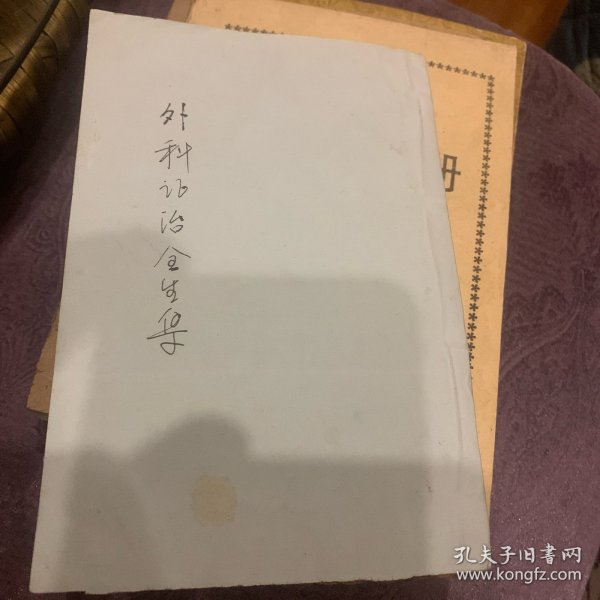 外科证治全生集
册
孔夫子旧书网
www.kongfz.com